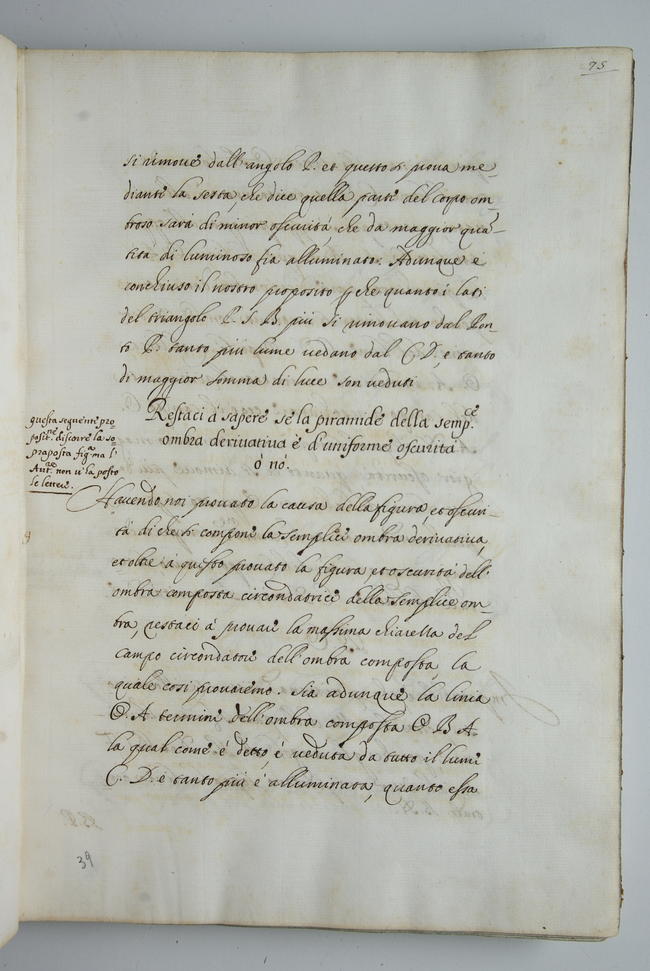 75
si rimove dall'angolo P. et questo si prova me-
diante la sesta, che dice quella parte del corpo om-
broso sará di minor oscuritá, che da maggior quã-
titá di luminoso fia alluminato. Adunque é
conchiuso il nostro proposito p che quanto i lati
del triangolo P. S. B. piú si rimovano dal Pon-
to P. tanto piu lume vedano dal C. D. e tanto
di maggior somma di luce son veduti
Restaci á sapere se la piramide della sempce.
ombra derivativa é d'uniforme oscuritá
ó nó.
questa seguente pro-
positne. discorre la so-
praposta figra ma l'
Autre. non v'la posto
le lettere.
Havendo noi provato la causa della figura, et oscuri-
tá di che si compone la semplice ombra derivativa,
et oltre á questo provato la figura et oscuritá dell'
ombra composta circondatrice della semplice om-
bra, restaci á provare la massima chiarezza del
campo circondatore dell'ombra composta la
quale cosi provaremo. Sia adunque la linia
O. A termine dell'ombra composta O B A.
la qual come é detto é veduta da tutto il lume
C. D. é tanto piú é alluminata, quanto essa
39